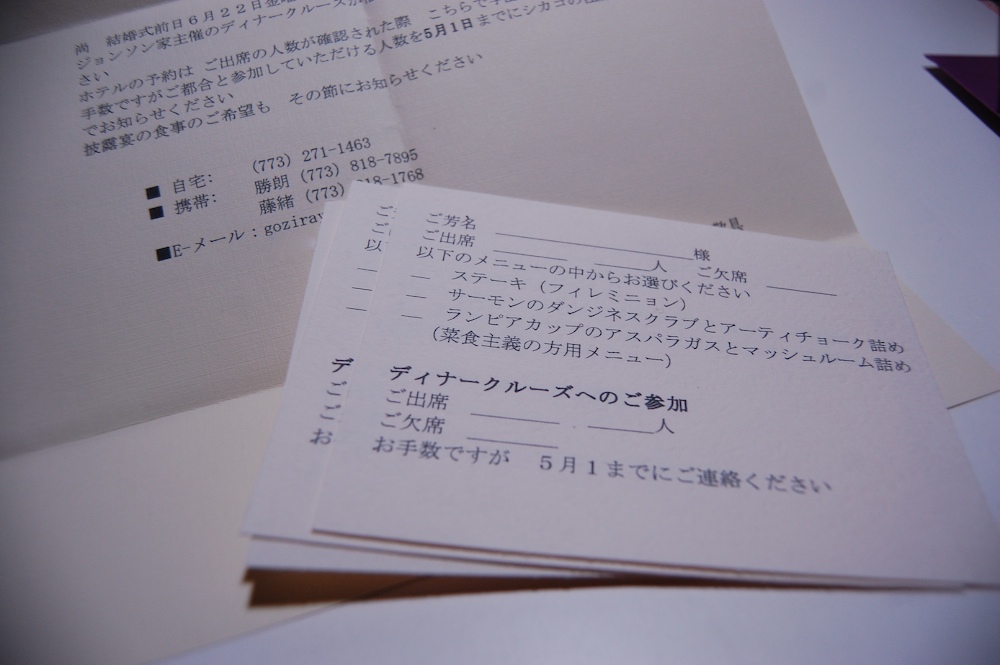 尚 結婚式前日6月22日金曜
ジョンソン家主催のディナークルーズが
さい
ホテルの予約は ご出席の人数が確認された際 こちらで
手数ですがご都合と参加していただける人数を5月1日までにシカゴの
でお知らせください
披露宴の食事のご希望も その節にお知らせください
■ 自宅: (773) 271-1463
■ 携帯: 勝朗 (773) 818-7895
藤緒 (773) 818-1768
■E-メール：gozirav
敬具
ご芳名 ____________________様
ご出席 ________ ______人 ご欠席 ________
以下のメニューの中からお選びください
__ ステーキ（フィレミニョン）
__ サーモンのダンジネスクラブとアーティチョーク詰め
__ ランピアカップのアスパラガスとマッシュルーム詰め
(菜食主義の方用メニュー)
ディナークルーズへのご参加
ご出席 _________ . _______人
ご欠席 _________
お手数ですが 5月1までにご連絡ください
ご
ご
以
デ
ご
ご
お